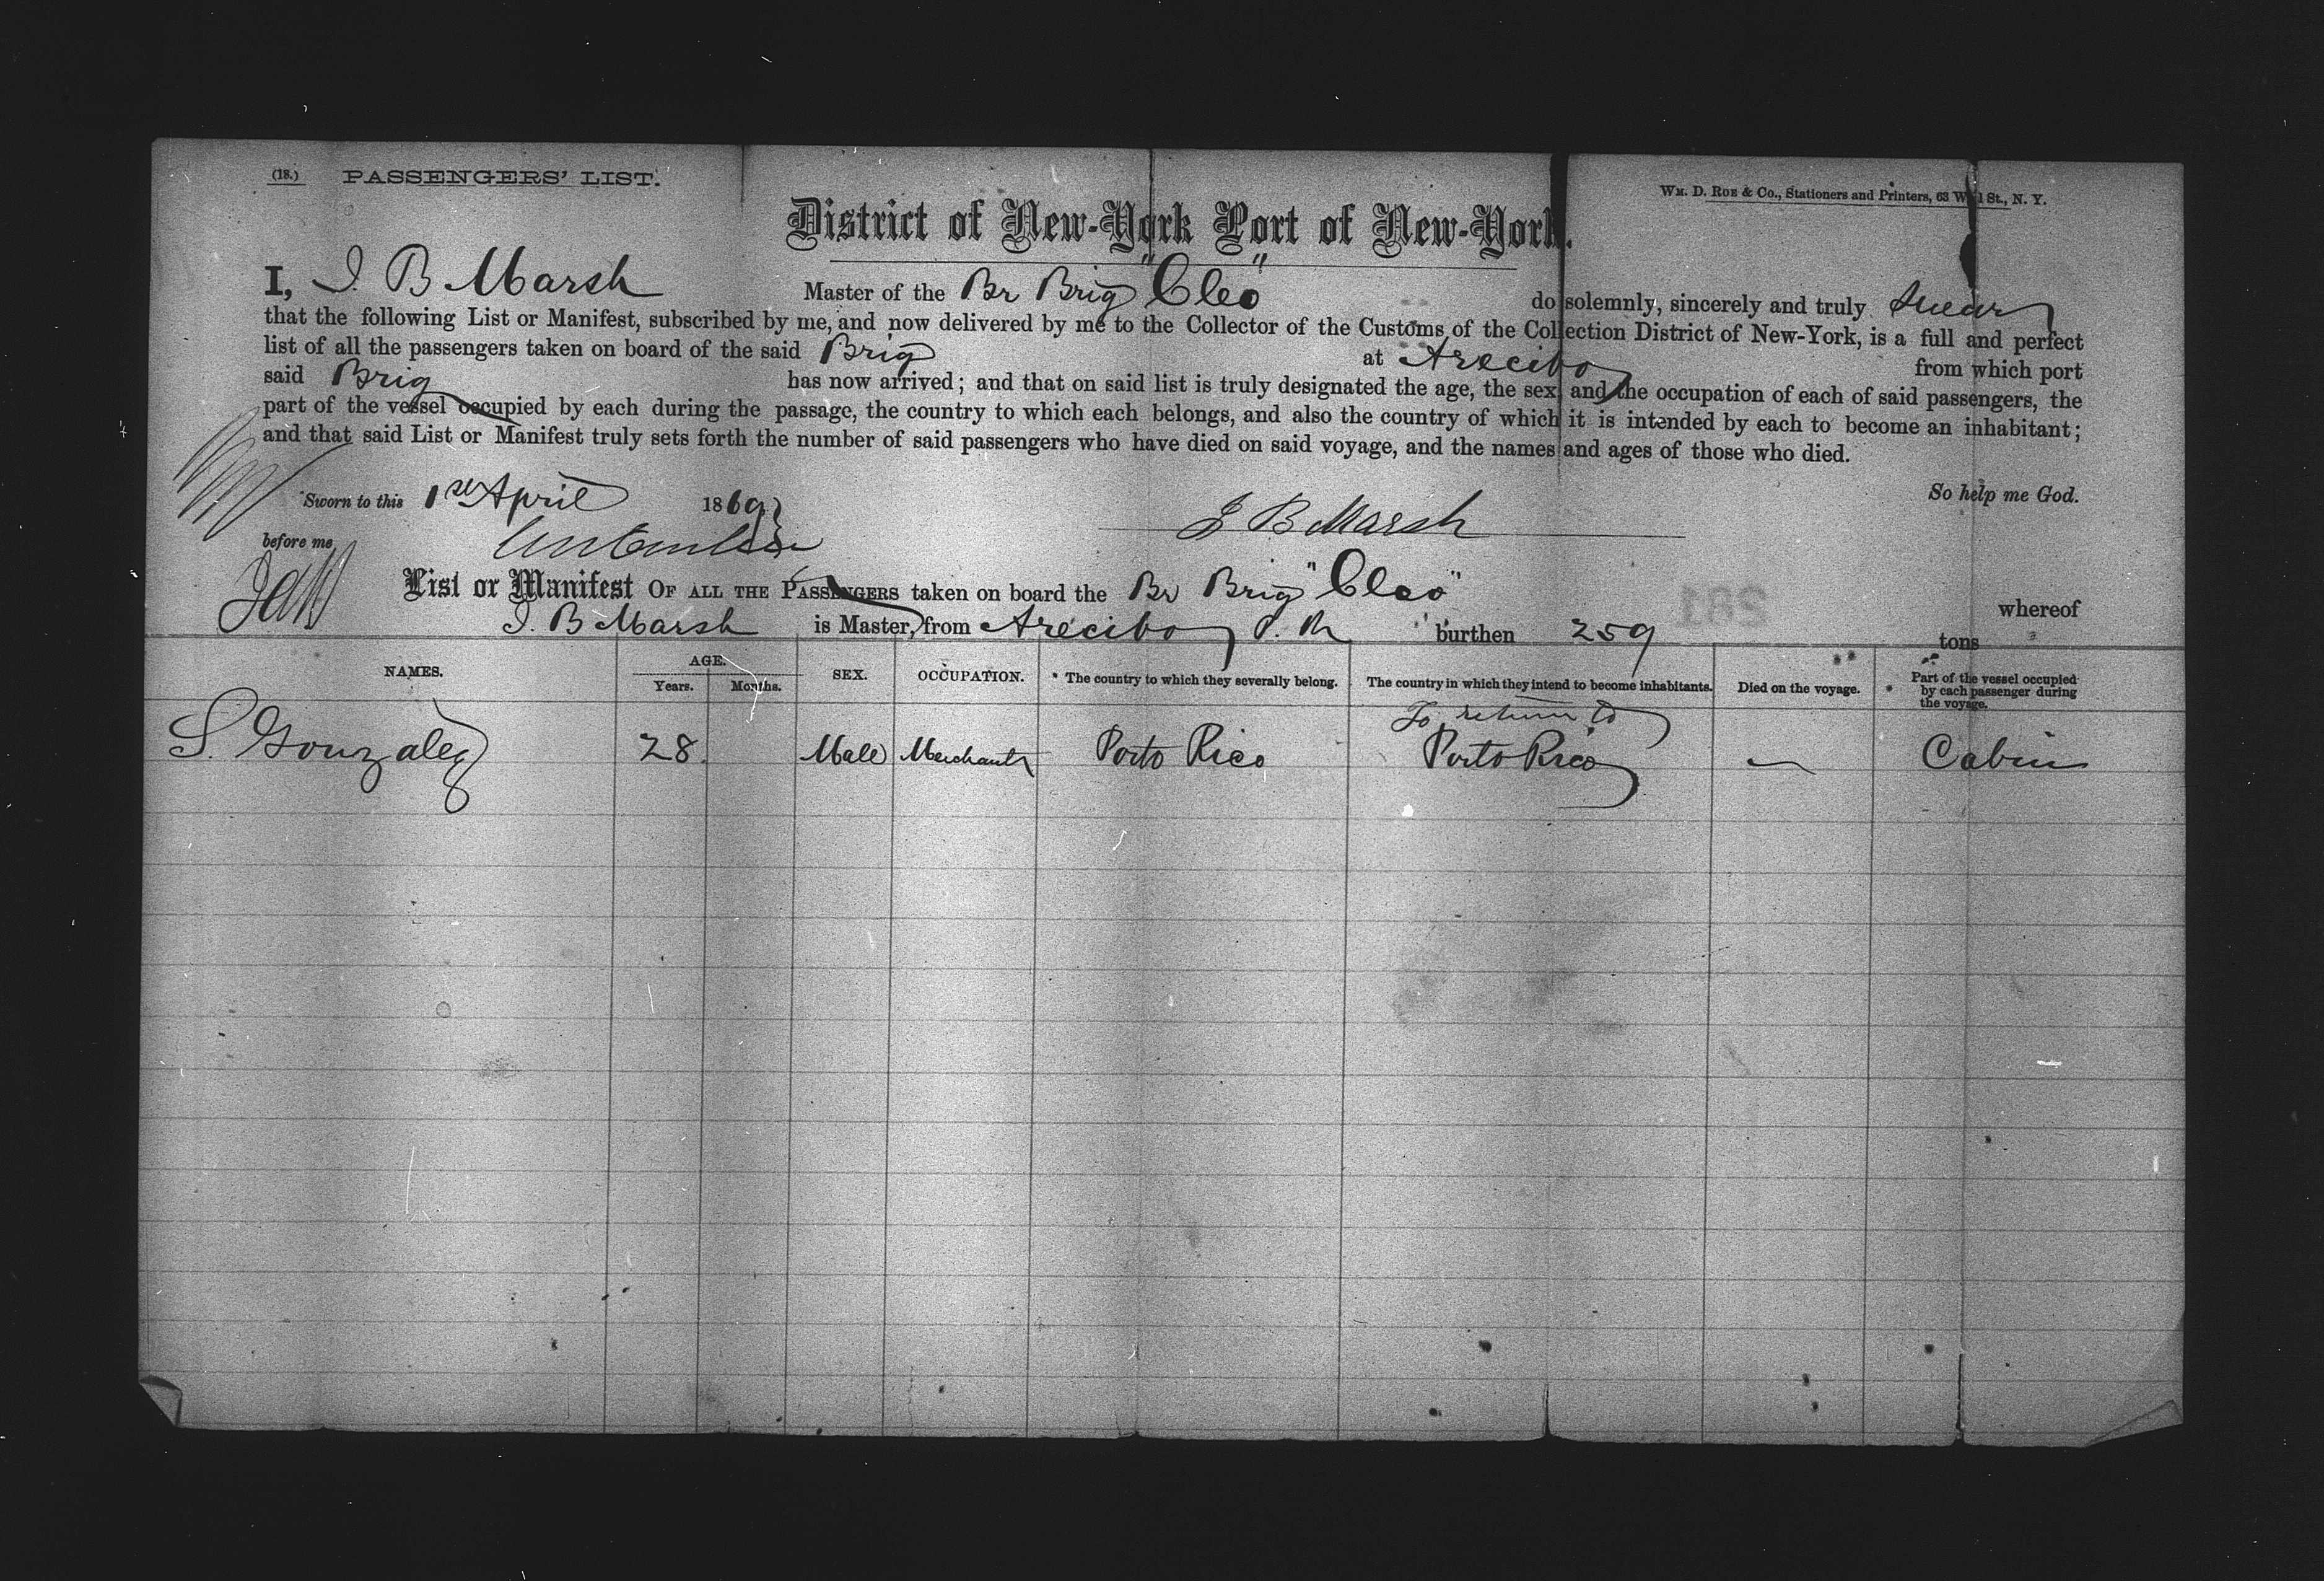 (18.) PASSENGERS' LIST.
WM. D. ROE & Co., Stationers and Printers, 63 W l St., N. Y.
District of New-York Port of New-York.
I, J. B Marsh Master of the Br Brig "Cleo" do solemnly, sincerely and truly swear
that the following List or Manifest, subscribed by me, and now delivered by me to the Collector of the Customs of the Collection District of New-York, is a full and perfect
list of all the passengers taken on board of the said Brig at Arecibo from which port
said Brig has now arrived; and that on said list is truly designated the age, the sex and the occupation of each of said passengers, the
part of the vessel occupied by each during the passage, the country to which each belongs, and also the country of which it is intended by each to become an inhabitant;
and that said List or Manifest truly sets forth the number of said passengers who have died on said voyage, and the names and ages of those who died.
So help me God.
Sworn to this 1st April 1869
J B Marsh
before me
List or Manifest OF ALL THE PASSENGERS taken on board the Br Brig "Cleo" whereof
J. B Marsh is Master, from Arecibo P. R burthen 259 tons
201
NAMES. AGE. Years. Months. SEX. OCCUPATION. The country to which they severally belong. The country in which they intend to become inhabitants. Died on the voyage. Part of the vessel occupied by each passenger during the voyage.
To return to
S. Gonzalez 28 Male Merchant Porto Rico Porto Rico — Cabin